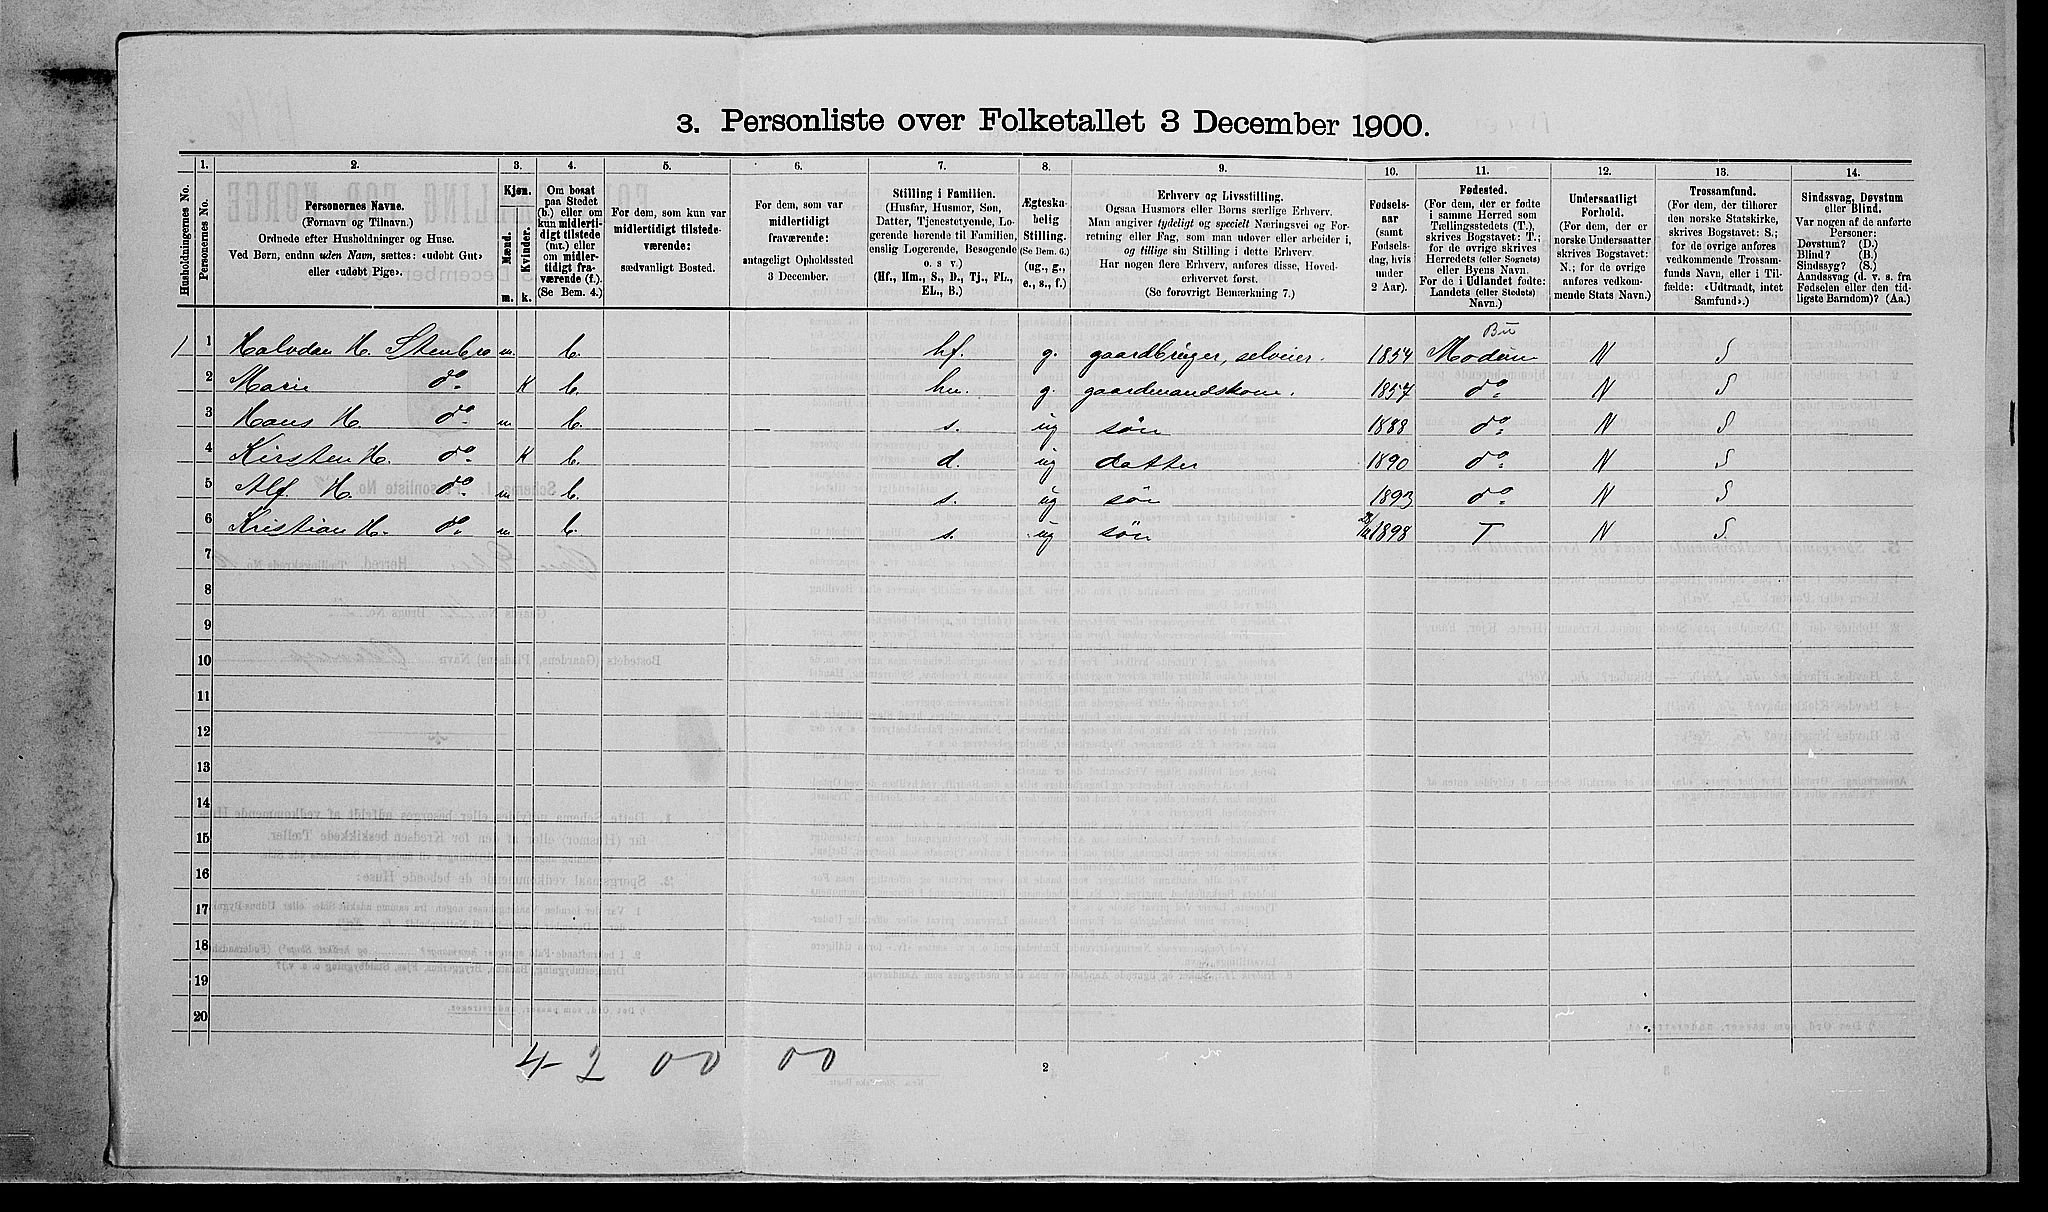 3. Personliste over Folketallet 3 December 1900.
1. 2. 3. 4. 5. 6. 7. 8. 9. 10. 11. 12. 13. 14.
Husholdningernes No.
Personernes No.
Personernes Navne.
(Fornavn og Tilnavn.)
Ordnede efter Husholdninger og Huse.
Ved Børn, endnu uden Navn, sættes: «udøbt Gut»
eller «udøbt Pige».
Kjøn.
Mænd.
Kvinder.
m. k.
Om bosat
paa Stedet
(b.) eller om
kun midlerti-
digt tilstede
(mt.) eller
om midler-
tidigt fra-
værende (f.).
(Se Bem. 4.)
For dem, som kun var
midlertidigt tilstede-
værende:
sædvanligt Bosted.
For dem, som var
midlertidigt
fraværende:
antageligt Opholdssted
3 December.
Stilling i Familien.
(Husfar, Husmor, Søn,
Datter, Tjenestetyende, Lo-
gerende hørende til Familien,
enslig Logerende, Besøgende
o. s. v.)
(Hf., Hm., S., D., Tj., FL.,
EL., B.)
Ægteska-
belig
Stilling.
(Se Bem. 6.)
(ug., g.,
e., s., f.)
Erhverv og Livsstilling.
Ogsaa Husmors eller Børns særlige Erhverv.
Man angiver tydeligt og specielt Næringsvei og For-
retning eller Fag, som man udøver eller arbeider i,
og tillige sin Stilling i dette Erhverv.
Har nogen flere Erhverv, anføres disse, Hoved-
erhvervet først.
(Se forøvrigt Bemærkning 7.)
Fødsels-
aar
(samt
Fødsels-
dag, hvis
under
2 Aar).
Fødested.
(For dem, der er fødte
i samme Herred som
Tællingsstedets (T.),
skrives Bogstavet: T.;
for de øvrige skrives
Herredets (eller Sognets)
eller Byens Navn.
For de i Udlandet fødte:
Landets (eller Stedets)
Navn.)
Undersaatligt
Forhold.
(For dem, der er
norske Undersaatter
skrives Bogstavet:
N.; for de øvrige
anføres vedkom-
mende Stats Navn.)
Trossamfund.
(For dem, der tilhører
den norske Statskirke,
skrives Bogstavet: S.;
for de øvrige anføres
vedkommende Trossam-
funds Navn, eller i Til-
fælde: «Udtraadt, intet
Samfund».)
Sindssvag, Døvstum
eller Blind.
Var nogen af de anførte
Personer:
Døvstum? (D.)
Blind? (B.)
Sindssyg? (S.)
Aandssvag (d. v. s. fra
Fødselen eller den tid-
ligste Barndom)? (Aa.)
Bu
1 1 Halvdan H. Stenbro m. b. hf. g. gaardbruger, selveier. 1854 Modum N S
2 Marie do. K b. hu. g. gaardmandskone. 1857 do. N S
3 Hans H. do. m b. – s. ug søn 1888 do. N S
4 Kirsten H. do. K b. d. ug datter 1890 do. N S
5 Alf. H. do. m b. s. ug søn 1893 do. N S
6 Kristian H. do. m b. s. ug søn 1898 T N S.
7
8
9
10
11
12
13
14
15
16
17
18
19
20
4 2 00 00
2